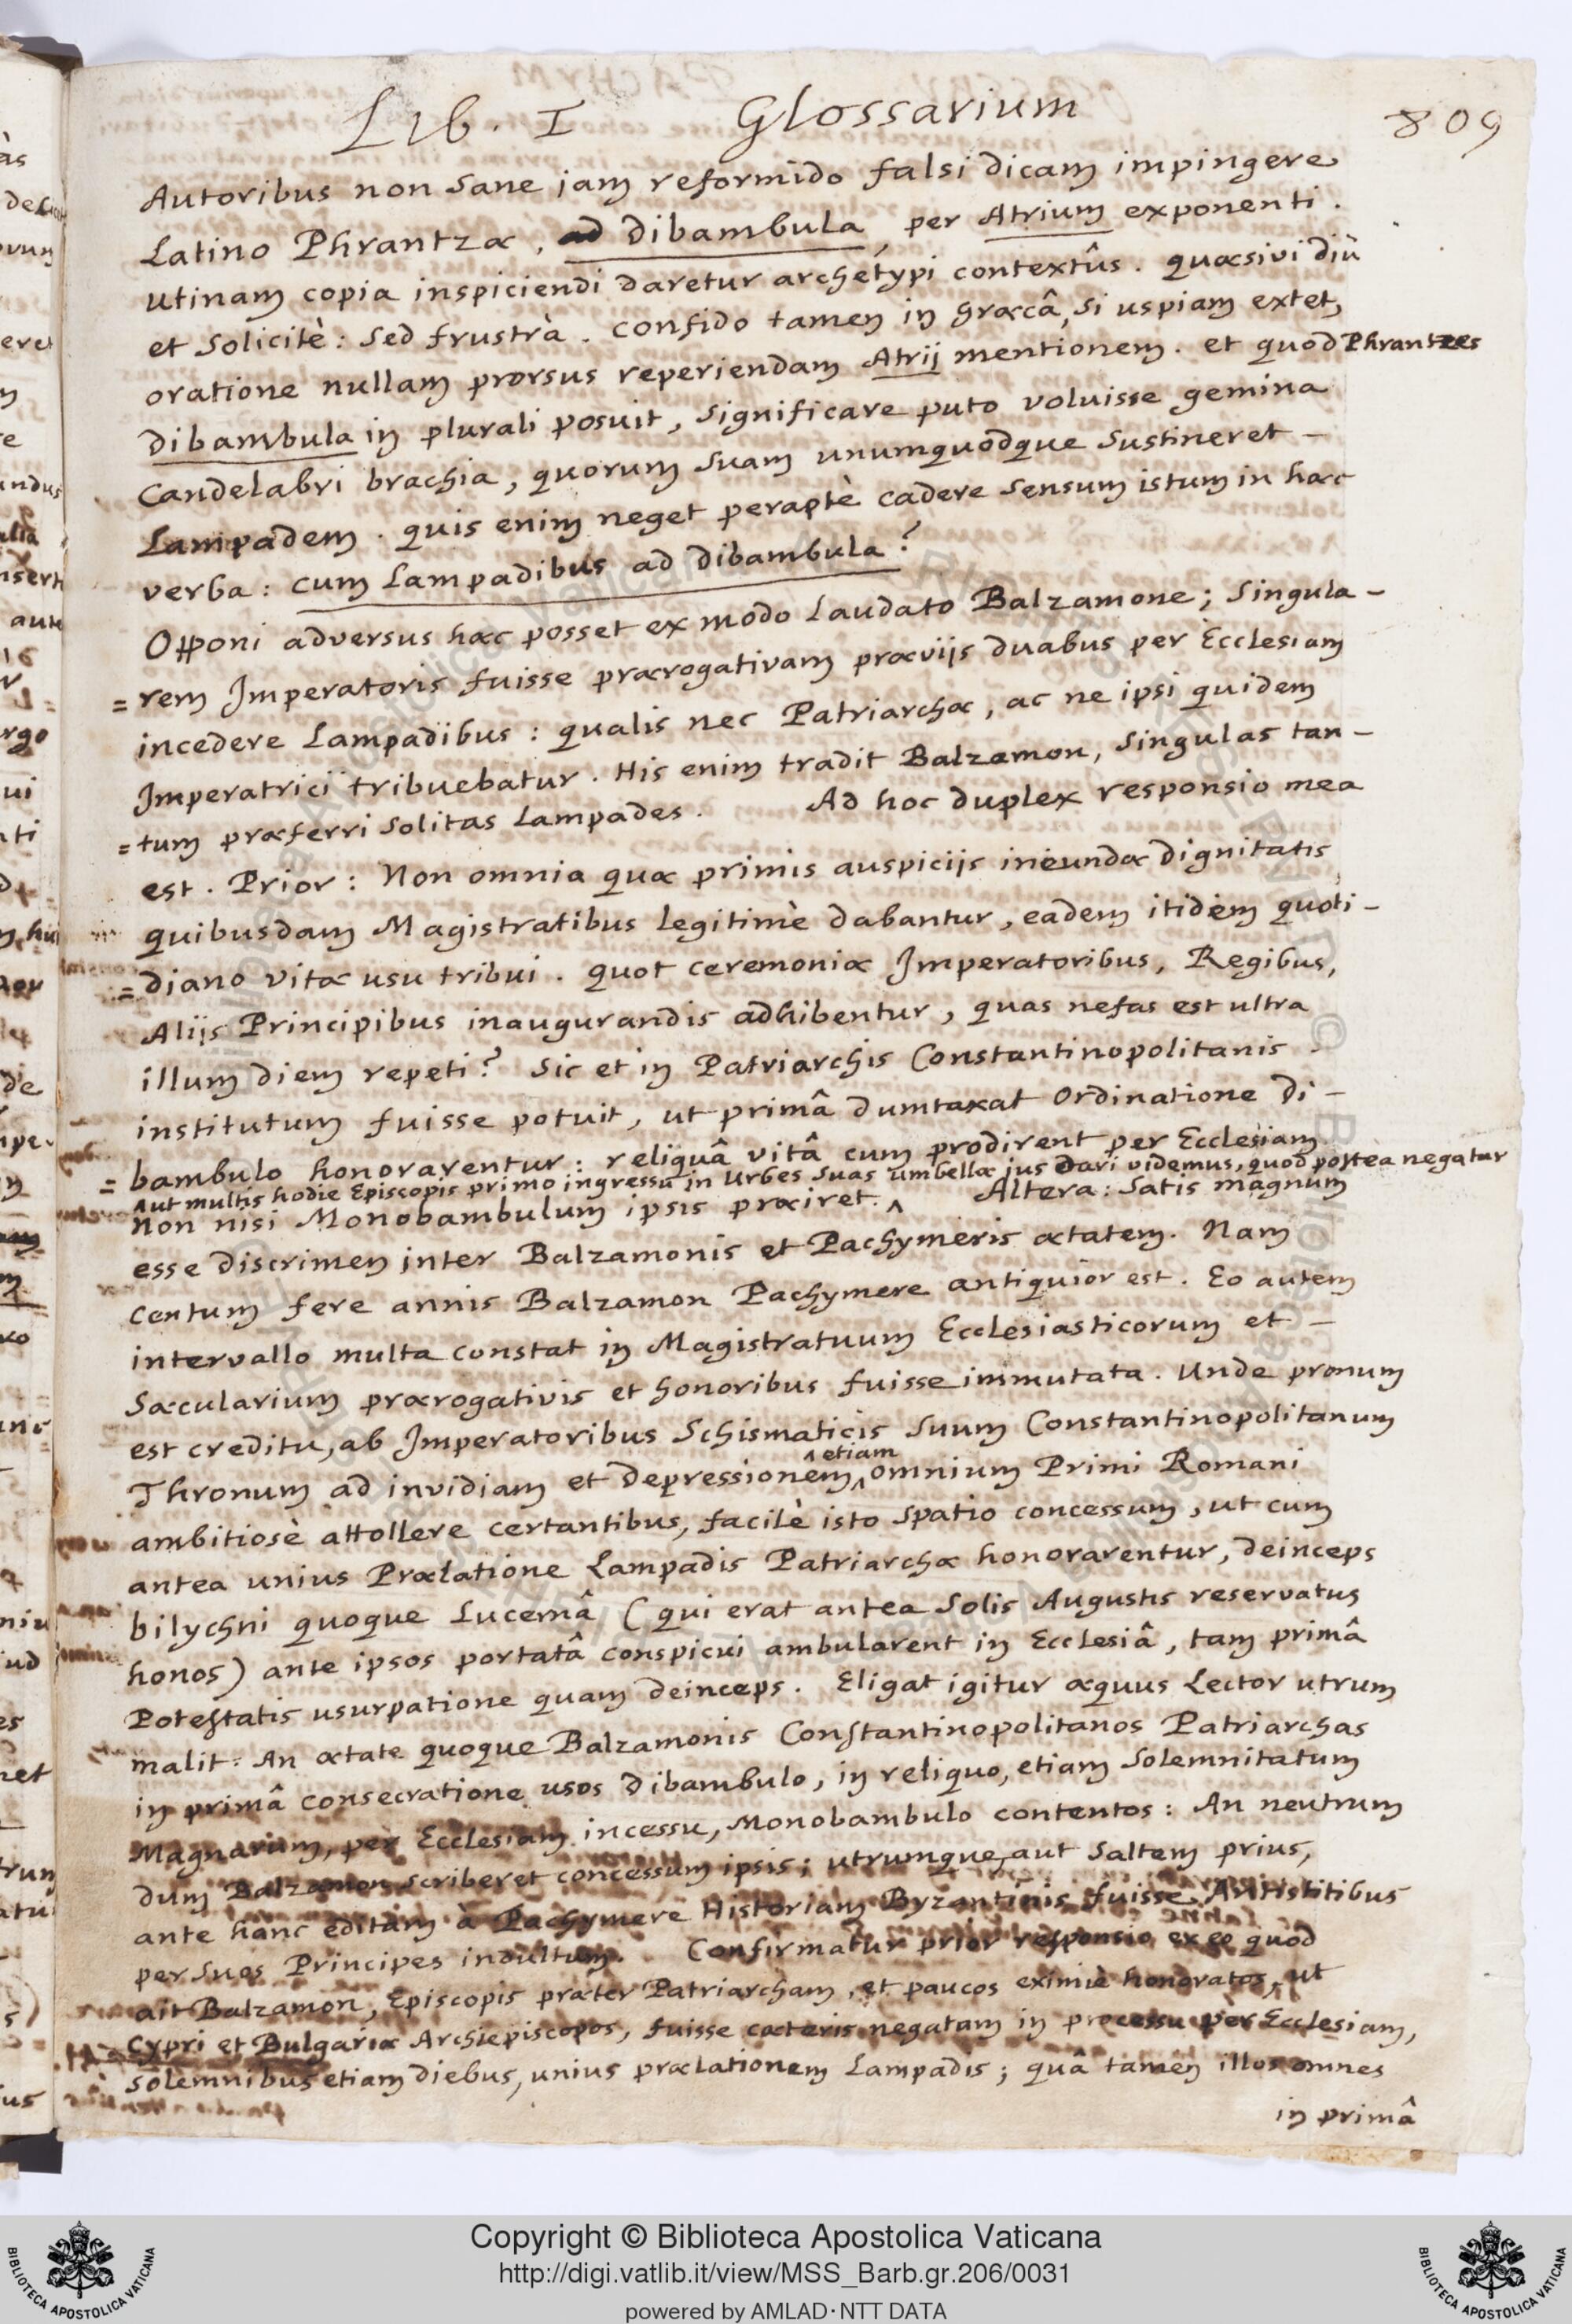 Lib. I Glossarium 809
Autoribus non sane jam reformido falsi dicam impingere
Latino Phrantzæ, ad dibambula, per Atrium exponenti.
Utinam copia inspiciendi daretur archetypi contextûs. quæsivi diù
et solicitè: sed frustrà. confido tamen in græcâ, si uspiam extet,
oratione nullam prorsus reperiendam Atrij mentionem. et quòd Phrantzes
dibambula in plurali posuit, significare puto voluisse gemina
candelabri brachia, quorum suam unumquodque sustineret
Lampadem. quis enim neget peraptè cadere sensum istum in hæc
verba: cum Lampadibus ad dibambula?
Opponi adversus hæc posset ex modo laudato Balzamone; singula-
=rem Imperatoris fuisse prærogativam præviis duabus per Ecclesiam
incedere Lampadibus: qualis nec Patriarchæ, ac ne ipsi quidem
Imperatrici tribuebatur. His enim tradit Balzamon, singulas tan-
=tum præferri solitas Lampades. Ad hoc duplex responsio mea
est. Prior: Non omnia quæ primis auspiciis ineundæ dignitatis
quibusdam Magistratibus legitimè dabantur, eadem itidem quoti-
=diano vitæ usu tribui. quot ceremoniæ Imperatoribus, Regibus,
Aliis Principibus inaugurandis adhibentur, quas nefas est ultra
illum diem repeti? Sic et in Patriarchis Constantinopolitanis
institutum fuisse potuit, ut primâ dumtaxat Ordinatione di-
=bambulo honorarentur: reliquâ vitâ cum prodirent per Ecclesiam
^ut multis hodie Episcopis primo ingressu in Urbes suas umbellæ jus dari videmus, quod postea negatur
non nisi Monobambulum ipsis præiret.^ Altera: Satis magnum
esse discrimen inter Balzamonis et Pachymeris ætatem. Nam
centum fere annis Balzamon Pachymere antiquior est. Eo autem
intervallo multa constat in Magistratuum Ecclesiasticorum et
Sæcularium prærogativis et honoribus fuisse immutata. Unde pronum
est creditu, ab Imperatoribus Schismaticis suum Constantinopolitanum
^etiam
Thronum ad invidiam et depressionem^omnium Primi Romani
ambitiosè attollere certantibus, facilè isto spatio concessum, ut cum
antea unius Prælatione Lampadis Patriarchæ honorarentur, deinceps
bilychni quoque Lucernâ (qui erat antea solis Augustis reservatus
honos) ante ipsos portatâ conspicui ambularent in Ecclesiâ, tam primâ
Potestatis usurpatione quam deinceps. Eligat igitur æquus Lector utrum
malit: An ætate quoque Balzamonis Constantinopolitanos Patriarchas
in primâ consecratione usos dibambulo, in reliquo, etiam solemnitatum
Magnarum, per Ecclesiam incessu, Monobambulo contentos: An neutrum
dum Balzamon scriberet concessum ipsis; utrumque, aut saltem prius,
ante hanc editam à Pachymere Historiam Byzantinis fuisse Antistitibus
per suos Principes indultum. Confirmatur prior responsio ex eo quòd
ait Balzamon, Episcopis præter Patriarcham, et paucos eximiè honoratos, ut
Cypri et Bulgariæ Archiepiscopos, fuisse cæteris negatam in processu per Ecclesiam,
solemnibus etiam diebus, unius prælationem Lampadis; quâ tamen illos omnes
in primâ
Copyright © Biblioteca Apostolica Vaticana
http://digi.vatlib.it/view/MSS_Barb.gr.206/0031
powered by AMLAD·NTT DATA
BIBLIOTECA APOSTOLICA VATICANA
BIBLIOTECA APOSTOLICA VATICANA